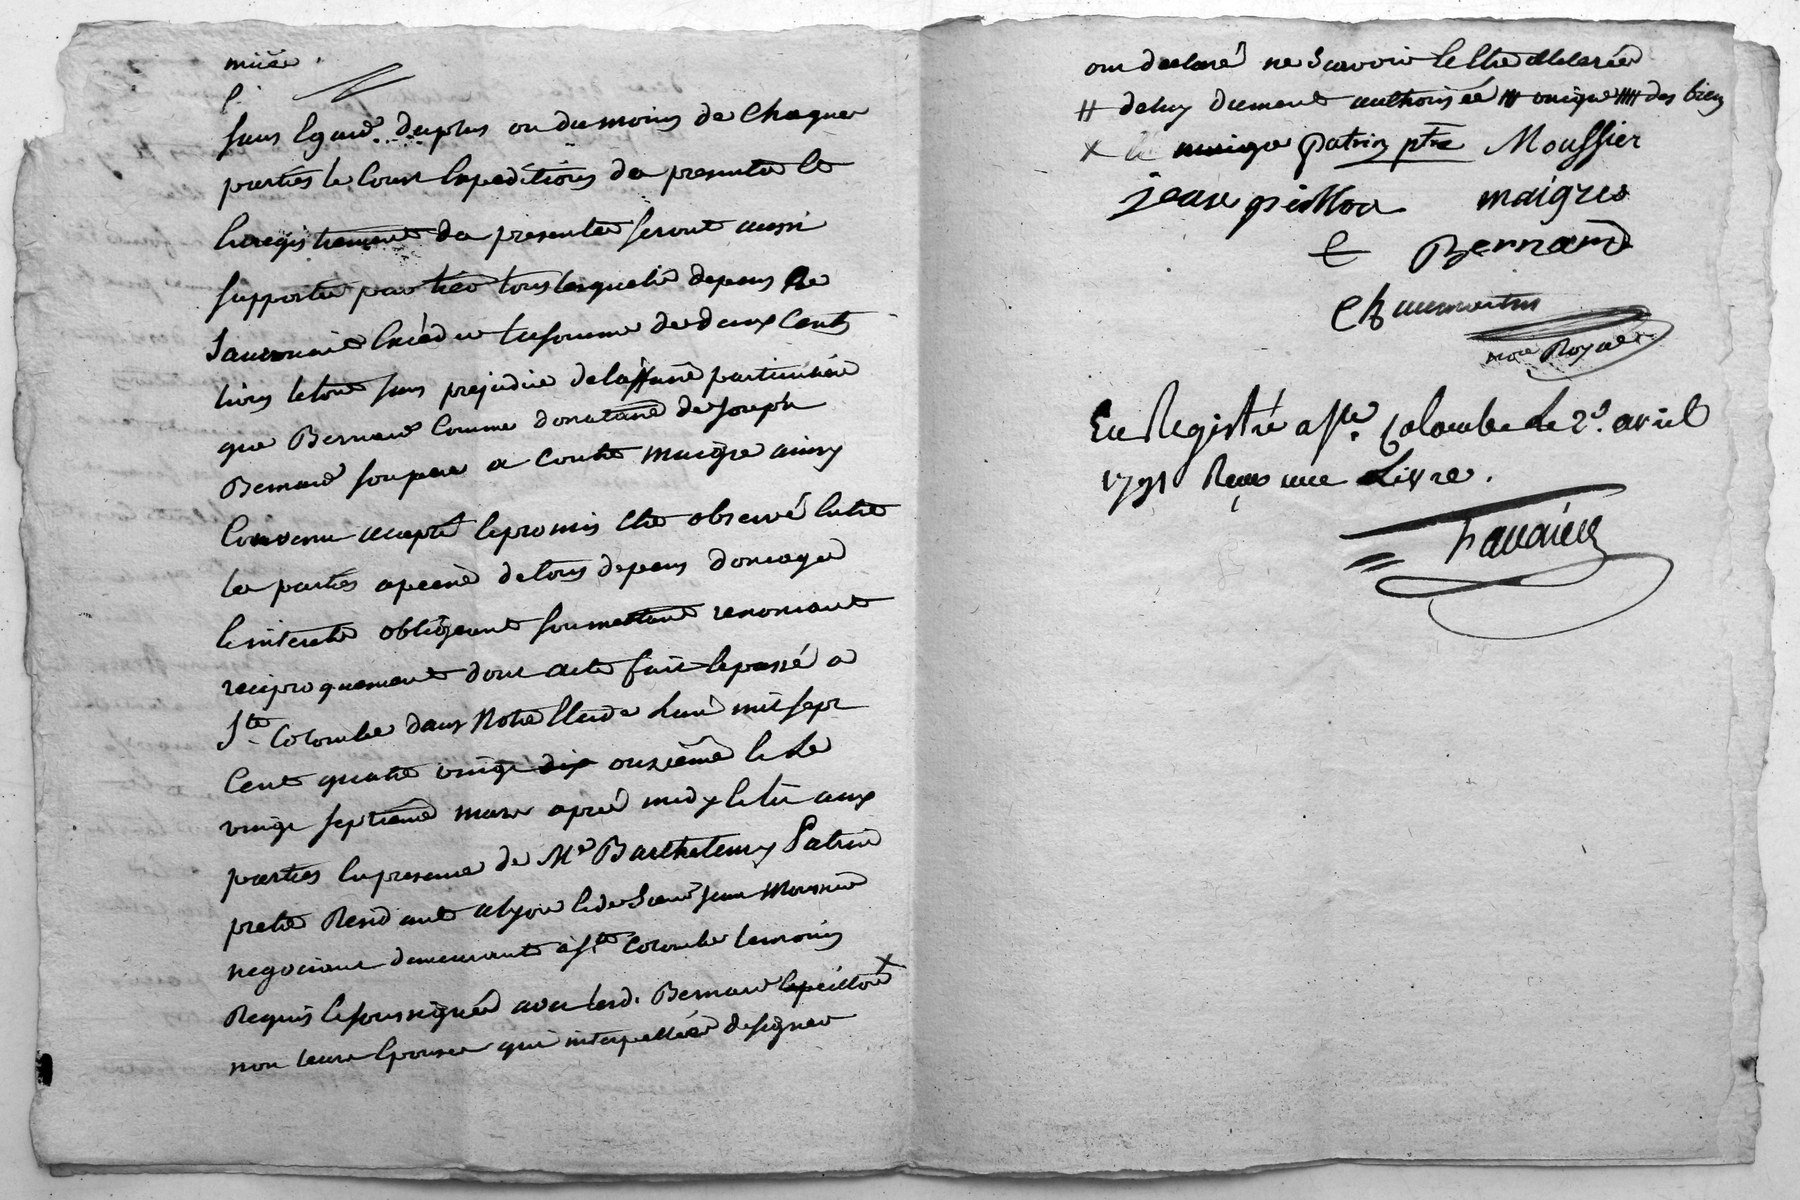 sans Egard du plus ou du moins de chaque
parties le cout Expeditions de presente et
Enregistrement de presente seront aussi
supporté par tous lesquels depens se
Sauvoient Exceder la somme de deux Cent
livres le tout sans prejudice de laffaire particuliere
que Bernard Comme donataire de Joseph
Bernard son pere a contre maigre ainsy
Convenu accepté et promis Etre observé Entre
les parties a peine de tous depens domages
et interets obligeant soumettant renoncant
reciproquement dont acte fait et passé a
Ste Colombe dans Notre Etude Lan mil sept
Cent quatre vingt dix onzieme et Le
vingt septieme mars apres midy et lu aux
parties En presence de Me Barthelemy Patrin
pretre Residant a lyon et de Sieur Jean Moussier
negociant demeurant a Ste Colombe temoins
Requis et soussignés avec led. Bernard et peillon x
non leurs Epouses qui interpellées de signer
ont declaré ne Scavoir
# de luy dument authorisée ## unique ### des biens
x maigre patrin ptre Moussier
jean peillon maigre
Bernard
Chaumartin
Nore Royal
En Registré a Ste Colombe Le 2d. avril
1791 Reçu une Livre.